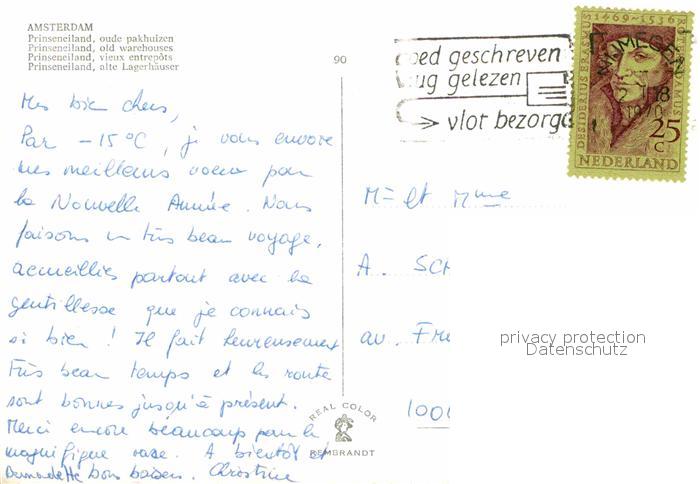 AMSTERDAM
Prinseneiland, oude pakhuizen
Prinseneiland, old warehouses
Prinseneiland, vieux entrepôts
Prinseneiland, alte Lagerhäuser
90
Mes bien chers,
Par -15°C, je vous envoie
mes meilleurs voeux pour
la Nouvelle Année. Nous
faisons un très beau voyage,
accueillies partout avec la
gentillesse que je connais
si bien ! Il fait heureusement
très beau temps et les routes
sont bonnes jusqu'à présent.
Merci encore beaucoup pour le
magnifique vase. A bientôt et
Bernadette bons baisers. Christine
oed geschreven
ug gelezen
vlot bezorgd
NIJMEGEN
DESIDERIUS ERASMUS
1469-1536
25 c
NEDERLAND
M= et Mme
A. SCH
av. Fre
1001
privacy protection
Datenschutz
REAL COLOR
REMBRANDT